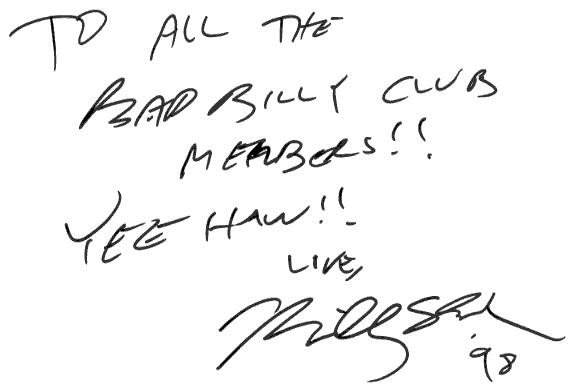 TO ALL THE
BAD BILLY CLUB
MEMBERS!!
YEE HAW!!
LIVE,
Billy
'98